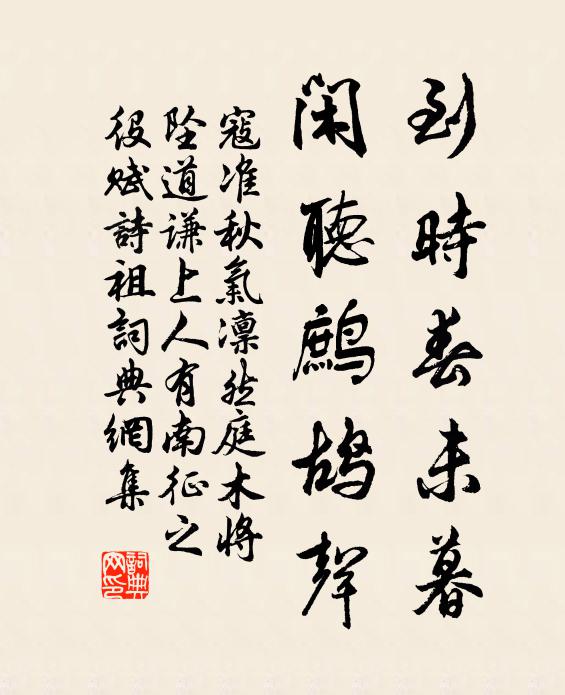 到時春未暮
閑聽鷓鴣聲
寇准秋氣凛然庭木將
坠道谦上人有南征之
役赋詩祖詞典網集
詞典
网印